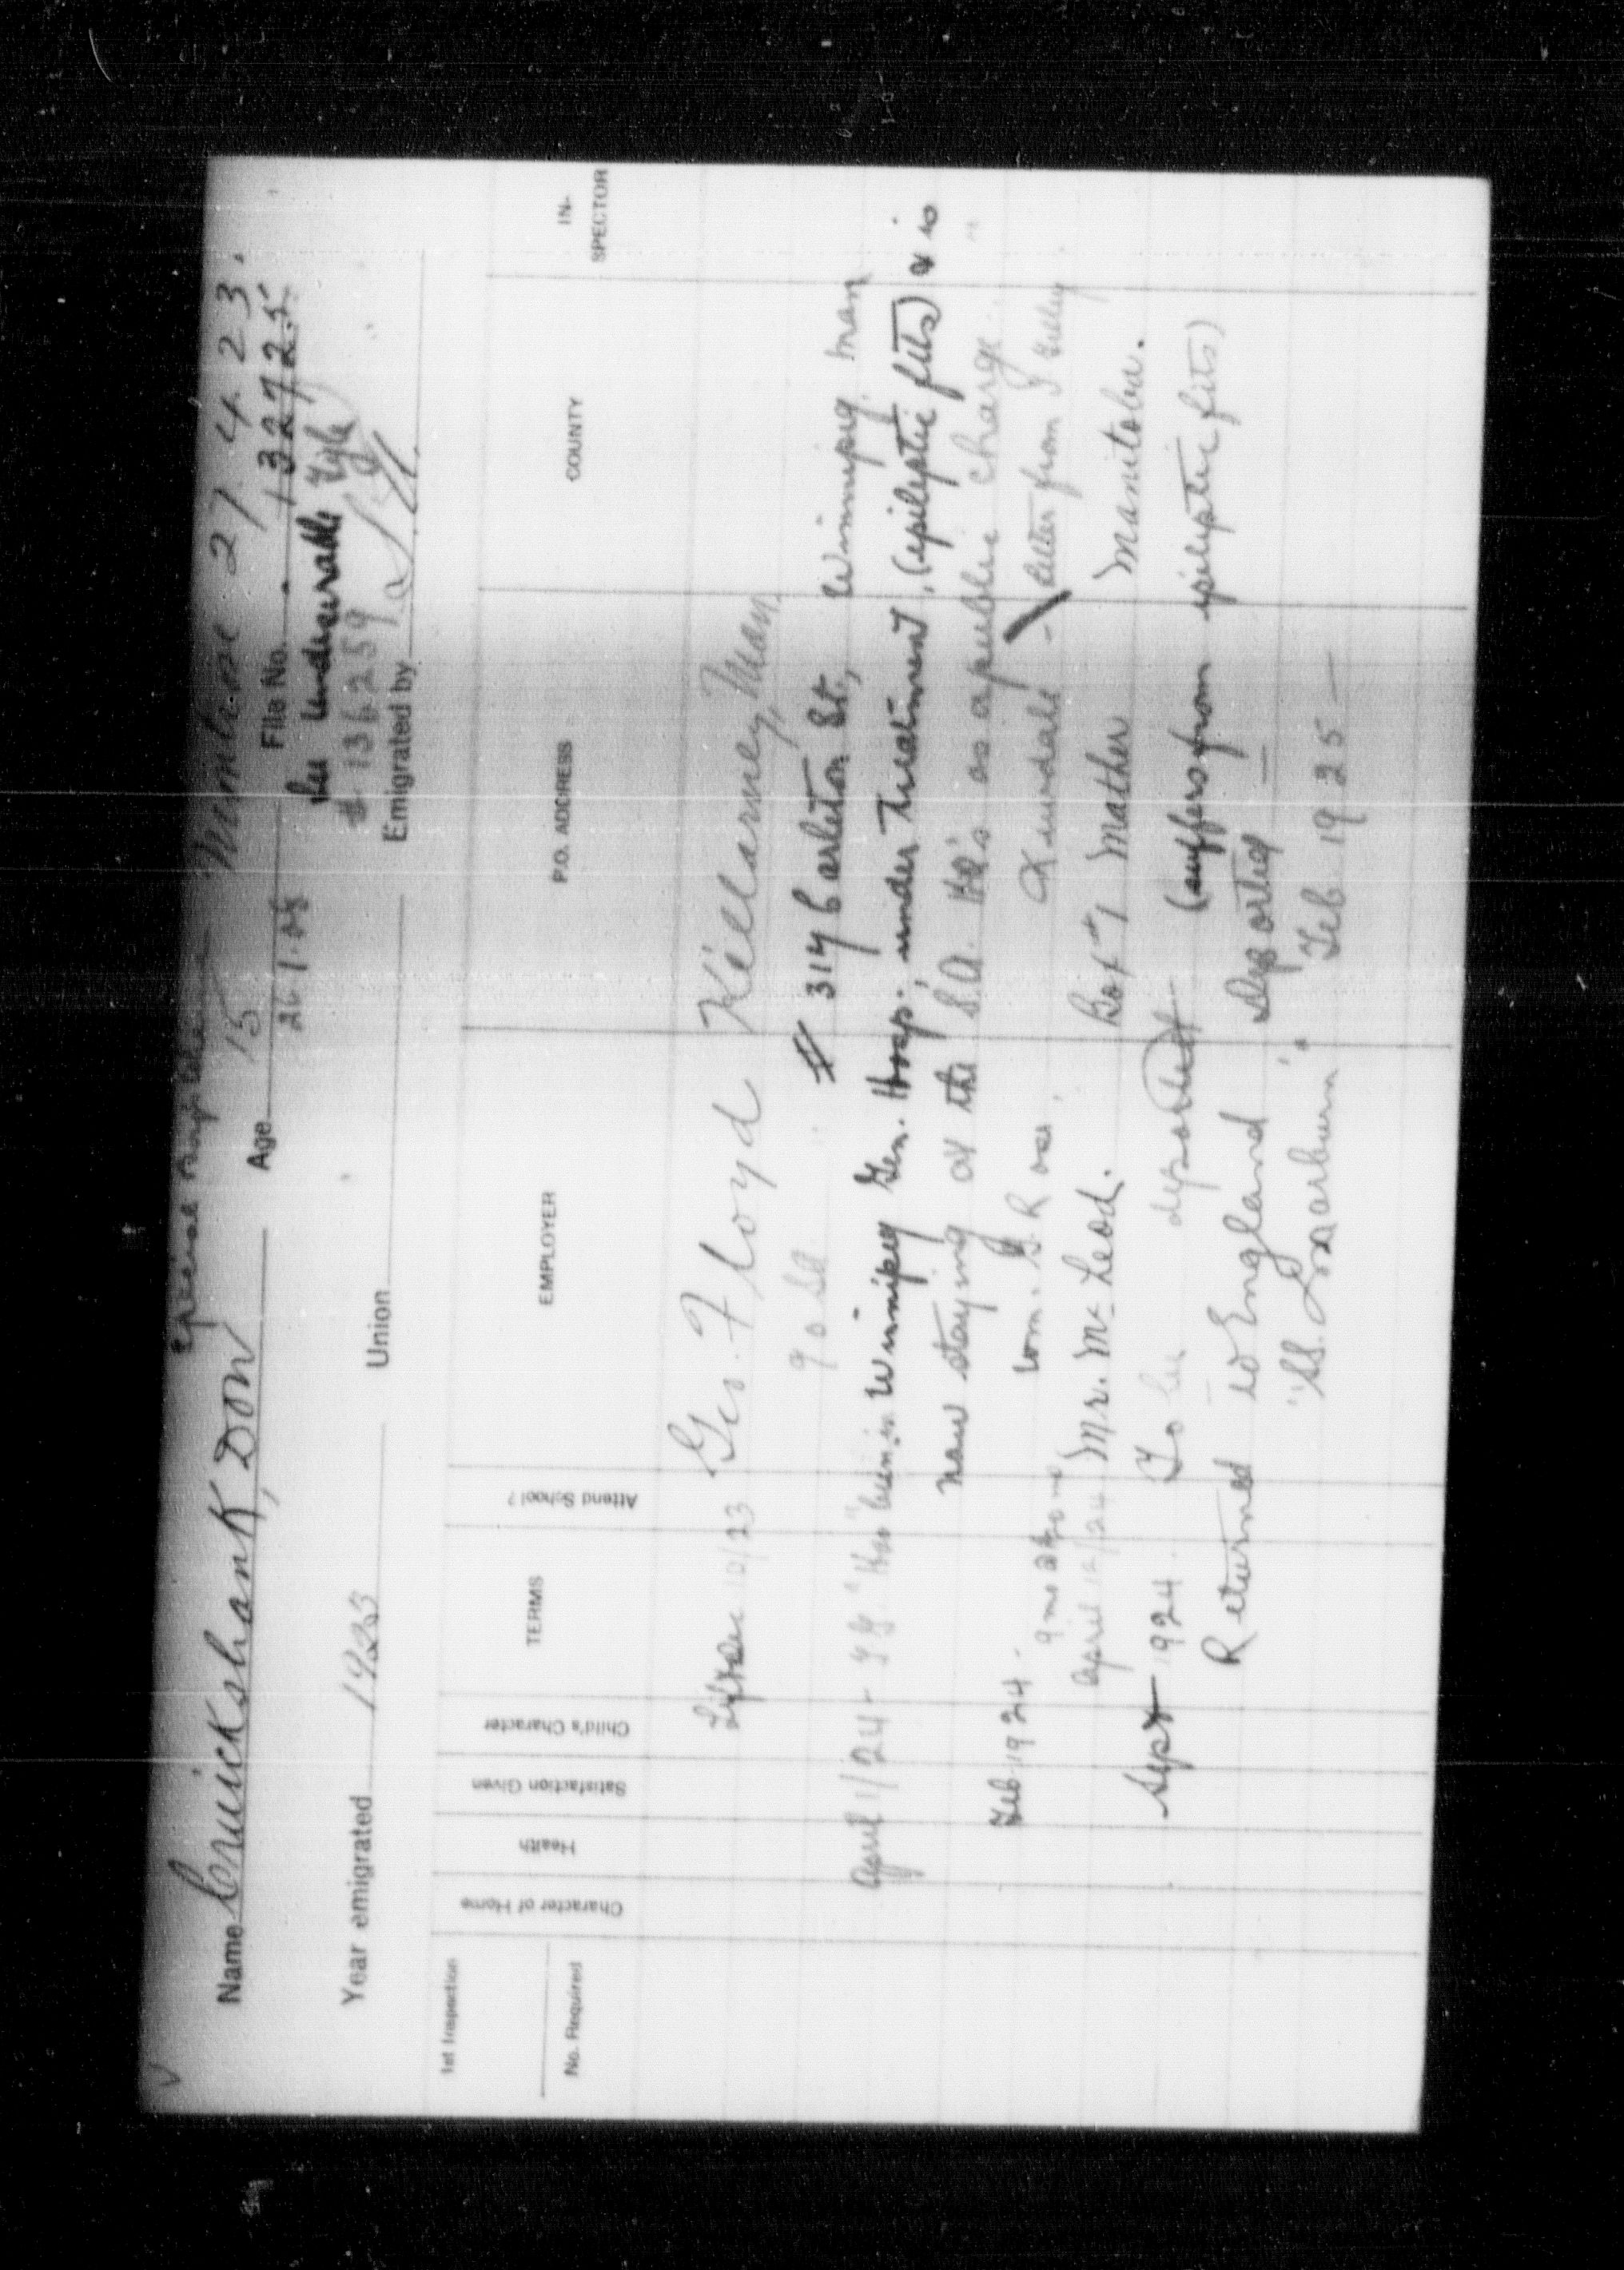 Name Cruickshank, Don Age 15 Minnedosa 27.4.23.
26.1.08 File No. 132725
See Undesirable File
# 136259
Year emigrated 1923 Union Emigrated by
1st Inspection
No. Required
Character of Home
Health
Satisfaction Given
Child's Character
TERMS
Attend School?
EMPLOYER
P.O. ADDRESS
COUNTY
IN-
SPECTOR
10/23 Geo. Floyd Killarney, Man
314 Carleton St., Winnipeg Man
April 1/24 - "Has been in Winnipeg Gen. Hosp. under treatment, (epileptic fits) & is
now staying at the S.A. Hd's as a public charge
Feb 1924 - letter from
April 12/24 Mr. McLeod. Box #1 Mather Manitoba.
Sept 1924. To be deported (suffers from epileptic fits)
Returned to England Deported
Feb 1925